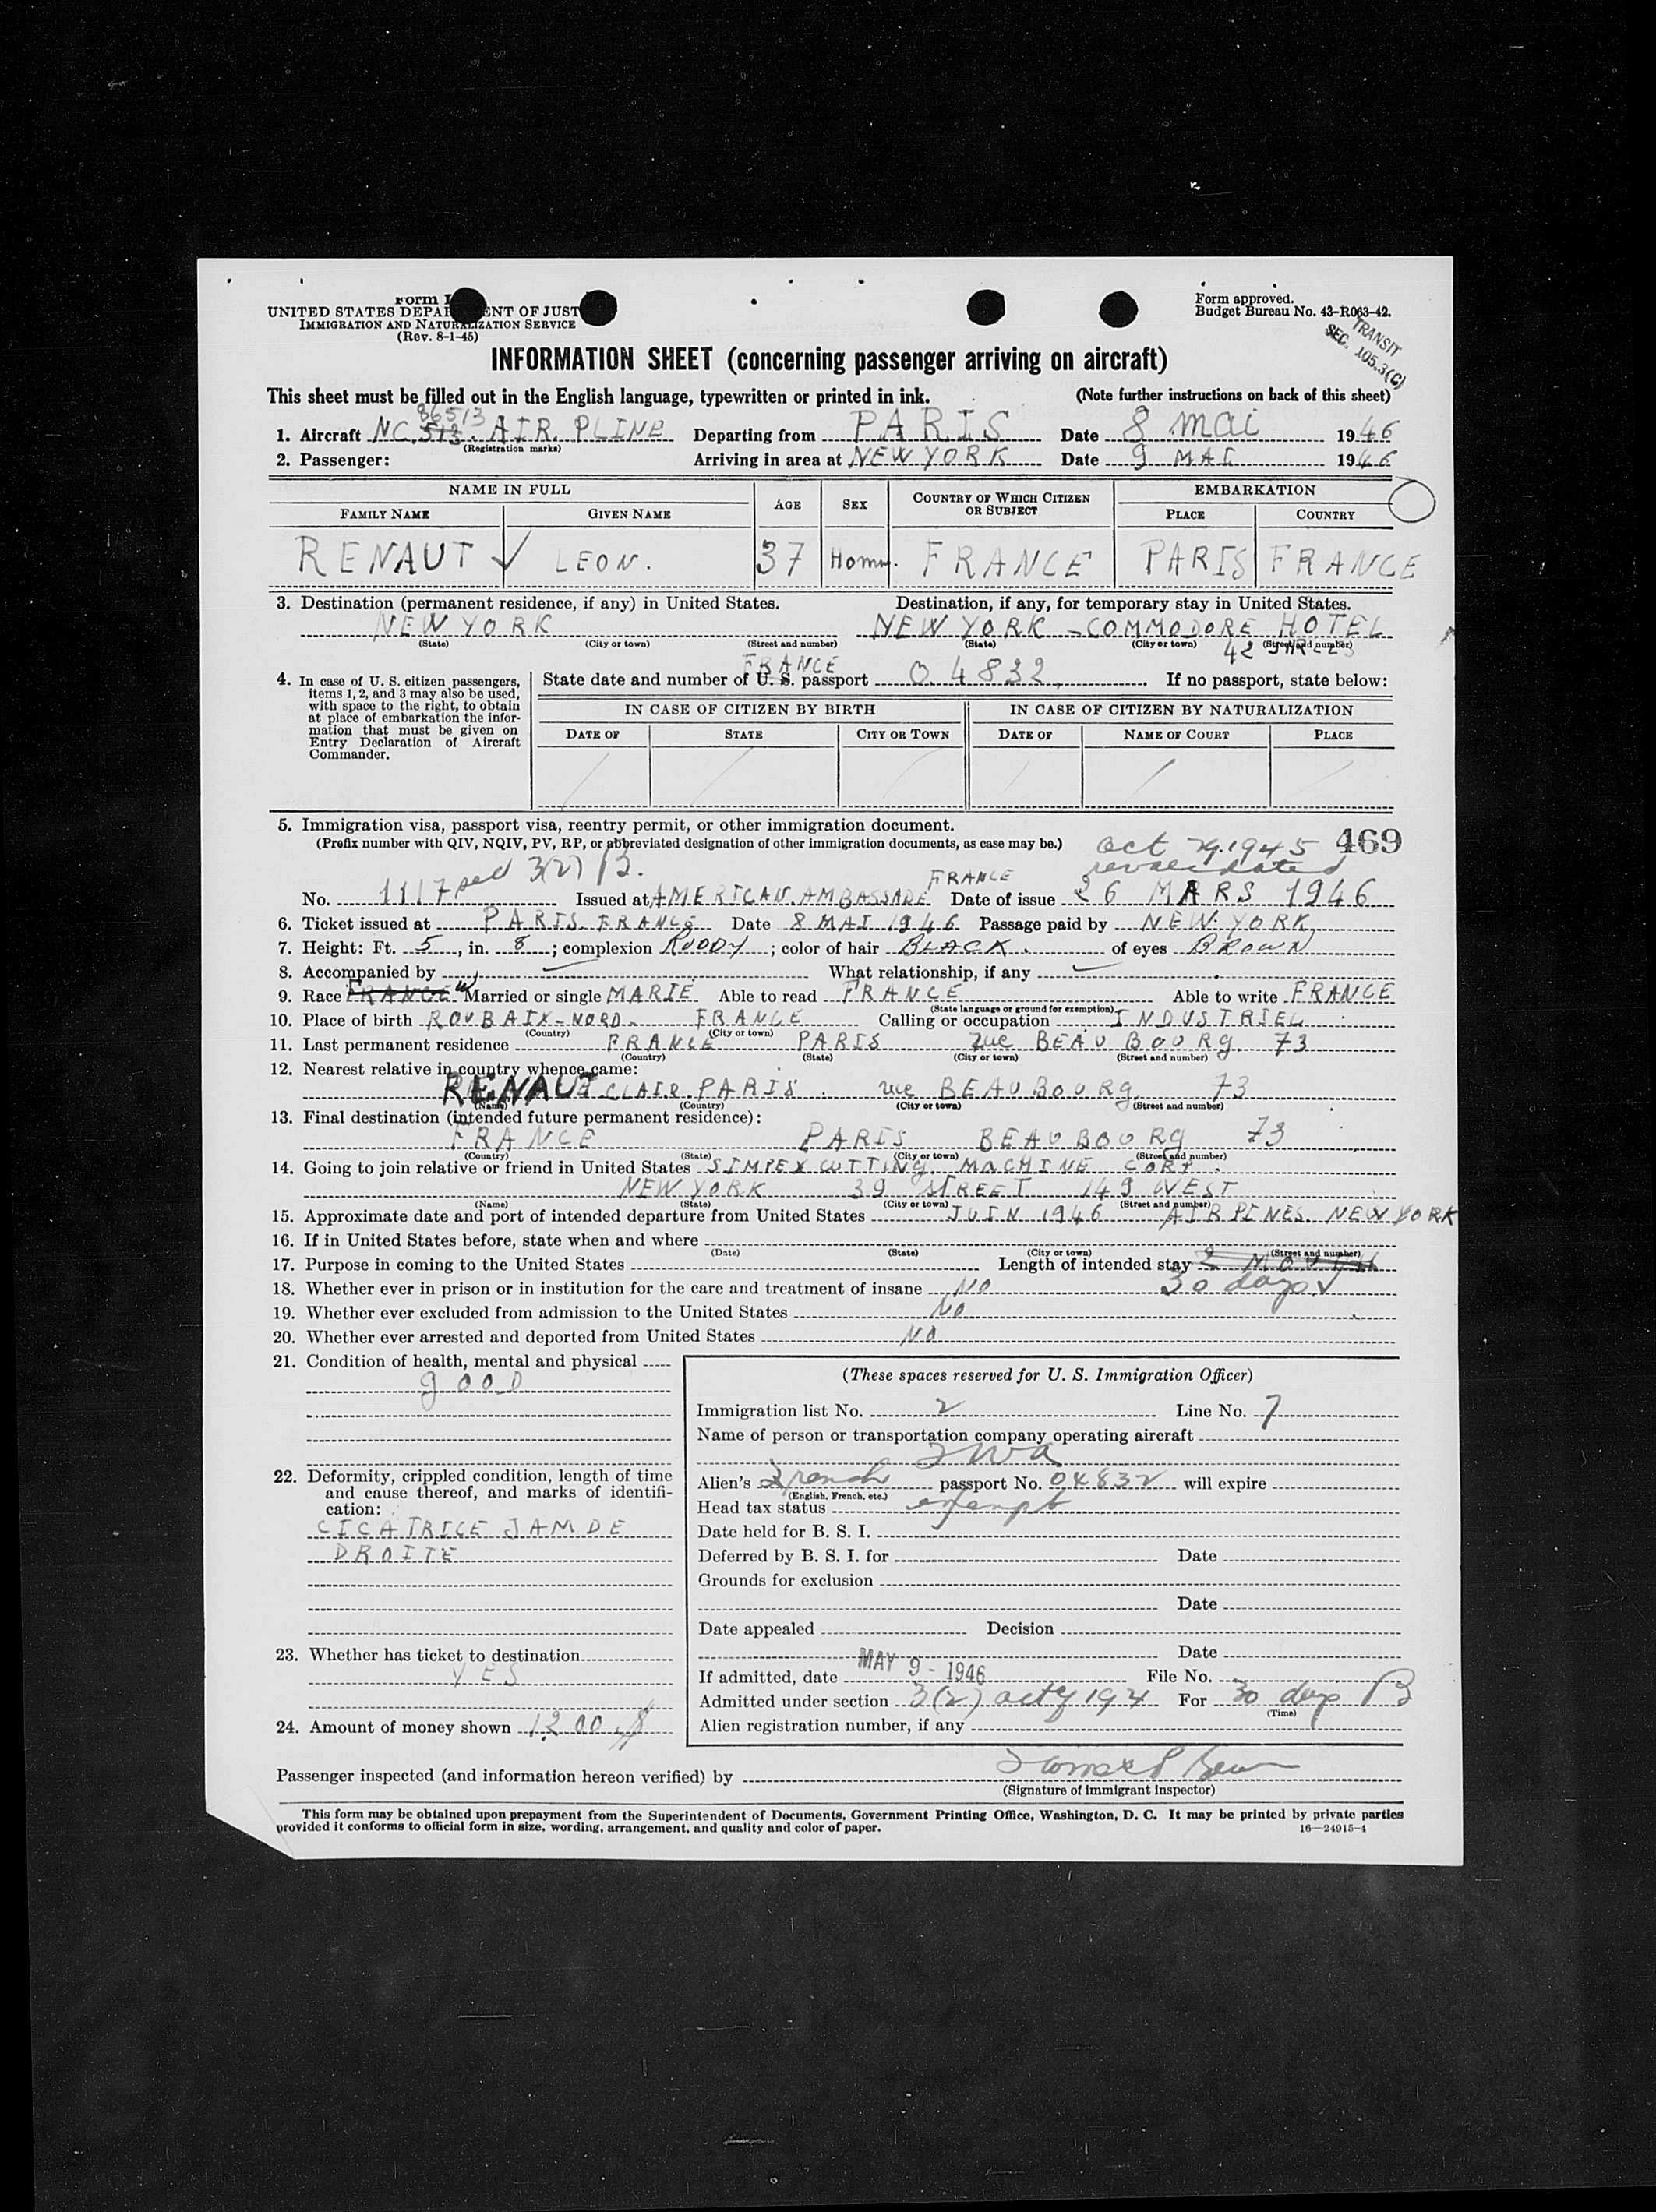 Form I
UNITED STATES DEPAR ENT OF JUST
IMMIGRATION AND NATURALIZATION SERVICE
(Rev. 8-1-45)
Form approved.
Budget Bureau No. 43-R063-42.
TRANSIT
SEC. 105.3(C)
INFORMATION SHEET (concerning passenger arriving on aircraft)
This sheet must be filled out in the English language, typewritten or printed in ink. (Note further instructions on back of this sheet)
86513
1. Aircraft NC. 513. AIR. PLINE Departing from PARIS Date 8 mai 1946
(Registration marks)
2. Passenger: Arriving in area at NEW YORK Date 9 MAI 1946
NAME IN FULL AGE SEX COUNTRY OF WHICH CITIZEN OR SUBJECT EMBARKATION
FAMILY NAME GIVEN NAME PLACE COUNTRY
RENAUT ✓ LEON. 37 Homm. FRANCE PARIS FRANCE
3. Destination (permanent residence, if any) in United States. Destination, if any, for temporary stay in United States.
NEW YORK NEW YORK - COMMODORE HOTEL
(State) (City or town) (Street and number) (State) (City or town) (Street and number)
42
FRANCE
4. In case of U. S. citizen passengers, items 1, 2, and 3 may also be used, with space to the right, to obtain at place of embarkation the information that must be given on Entry Declaration of Aircraft Commander.
State date and number of U. S. passport 04832. If no passport, state below:
IN CASE OF CITIZEN BY BIRTH IN CASE OF CITIZEN BY NATURALIZATION
DATE OF STATE CITY OR TOWN DATE OF NAME OF COURT PLACE
5. Immigration visa, passport visa, reentry permit, or other immigration document.
(Prefix number with QIV, NQIV, PV, RP, or abbreviated designation of other immigration documents, as case may be.)
oct 29.1945 469
revalidated
3(2)
FRANCE
No. 1117 Issued at AMERICAN. AMBASSADE Date of issue 26 MARS 1946
6. Ticket issued at PARIS. FRANCE Date 8 MAI 1946 Passage paid by NEW. YORK
7. Height: Ft. 5, in. 8; complexion RUDDY; color of hair BLACK. of eyes BROWN
8. Accompanied by What relationship, if any
9. Race FRANCE W Married or single MARIE Able to read FRANCE Able to write FRANCE
(State language or ground for exemption)
10. Place of birth ROUBAIX-NORD- FRANCE Calling or occupation INDUSTRIEL
(Country) (City or town)
11. Last permanent residence FRANCE PARIS rue BEAUBOURg. 73
(Country) (State) (City or town) (Street and number)
12. Nearest relative in country whence came:
RENAUT CLAIR. PARIS. rue BEAUBOURg 73
(Name) (Country) (City or town) (Street and number)
13. Final destination (intended future permanent residence):
FRANCE PARIS BEAUBOURg 73
(Country) (State) (City or town) (Street and number)
14. Going to join relative or friend in United States SIMPEX CUTTINg. MACHINE CORP.
NEW YORK 39 STREET 149 WEST
(Name) (State) (City or town) (Street and number)
15. Approximate date and port of intended departure from United States JUIN 1946 AIR PLNES NEW YORK
16. If in United States before, state when and where
(Date) (State) (City or town) (Street and number)
17. Purpose in coming to the United States Length of intended stay
18. Whether ever in prison or in institution for the care and treatment of insane NO 30 days ✓
19. Whether ever excluded from admission to the United States NO
20. Whether ever arrested and deported from United States NO
21. Condition of health, mental and physical
gOOD
22. Deformity, crippled condition, length of time and cause thereof, and marks of identification:
CICATRICE JAMDE
DROITE
23. Whether has ticket to destination
YES
24. Amount of money shown 1200 $
(These spaces reserved for U. S. Immigration Officer)
Immigration list No. 2 Line No. 7
Name of person or transportation company operating aircraft
TWA
Alien's French passport No. 04832 will expire
(English, French, etc.)
Head tax status exempt
Date held for B. S. I.
Deferred by B. S. I. for Date
Grounds for exclusion
Date
Date appealed Decision
Date
If admitted, date MAY 9 - 1946 File No.
Admitted under section 3(2) act of 1924 For 30 days
(Time)
Alien registration number, if any
Passenger inspected (and information hereon verified) by
(Signature of immigrant inspector)
This form may be obtained upon prepayment from the Superintendent of Documents, Government Printing Office, Washington, D. C. It may be printed by private parties
provided it conforms to official form in size, wording, arrangement, and quality and color of paper. 16—24915-4